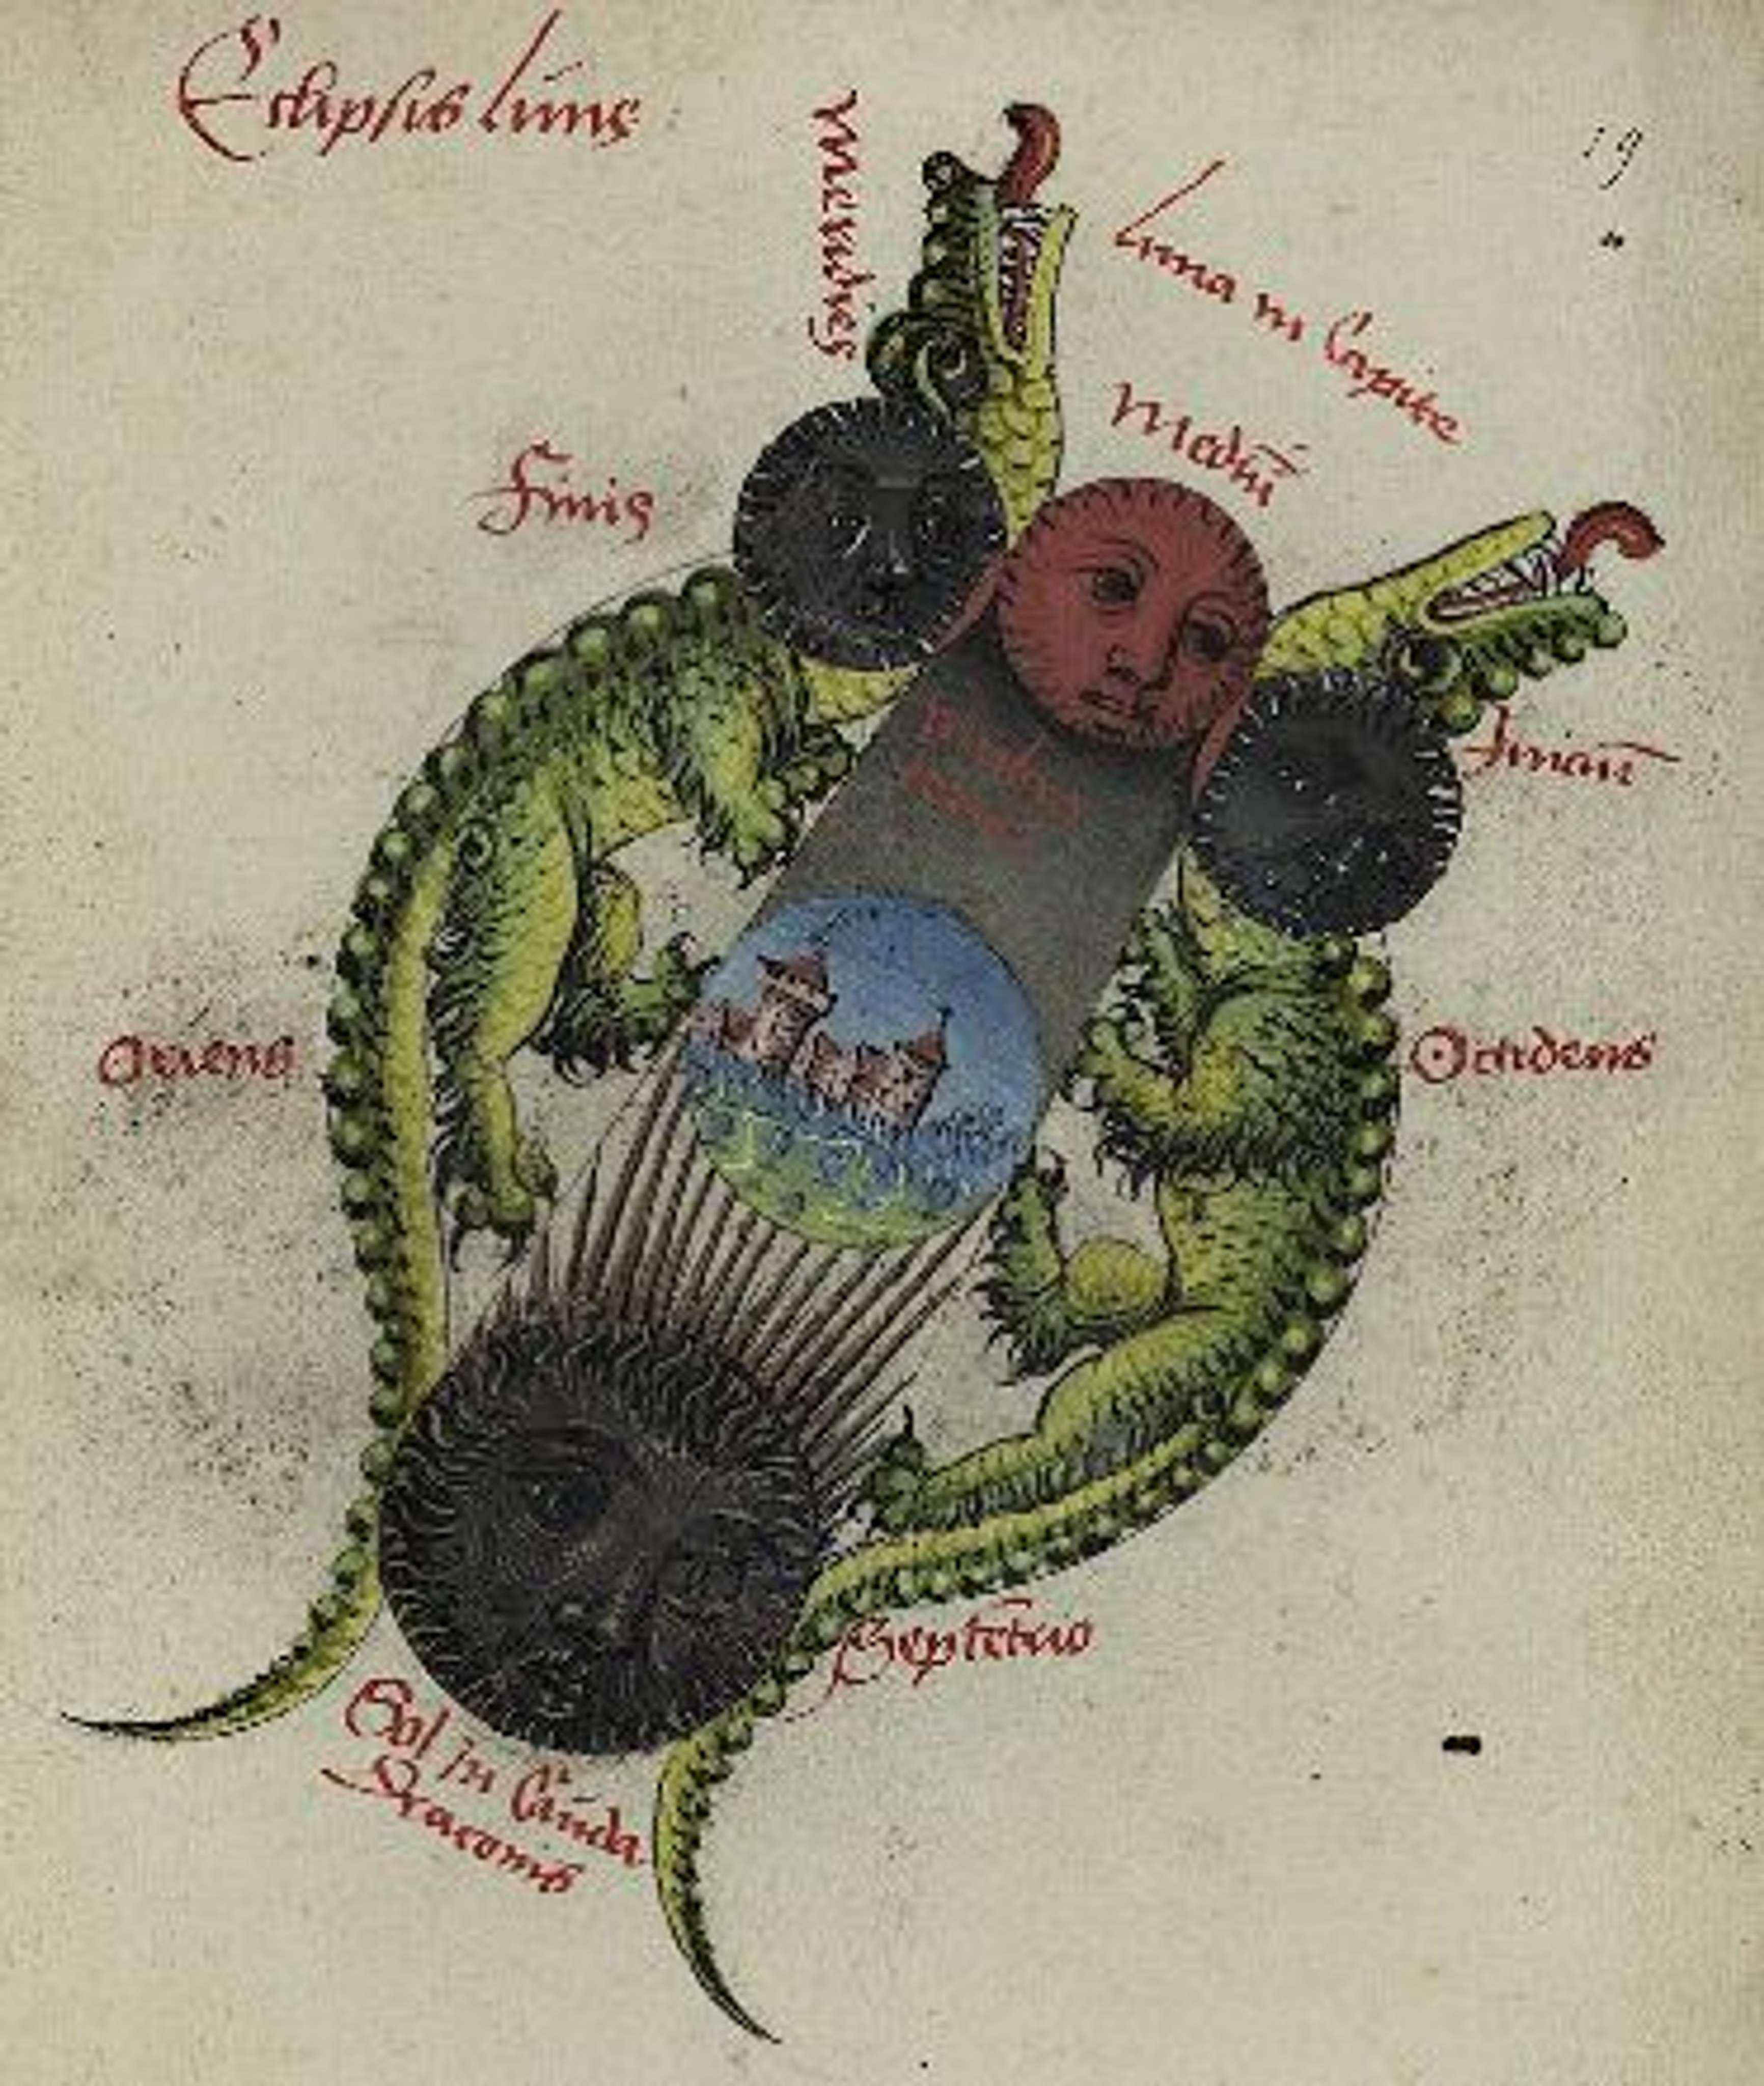 Eclipsis lune
19
Meridies
Luna in Capite
Mediū
Finis
Oriens
Occidens
Septētrio
Sol in Cauda
Draconis